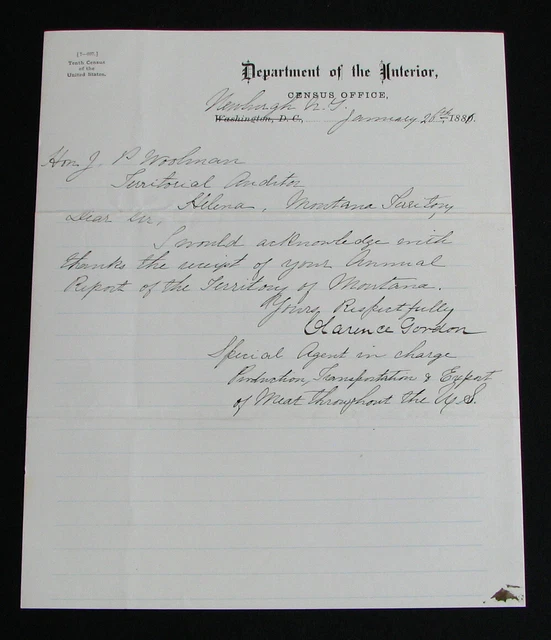 [7—   .]
Tenth Census
of the
United States.
Department of the Interior,
CENSUS OFFICE,
Newburgh N.Y.
Washington, D. C., January 26th, 1881.
Hon J P Woolman
Territorial Auditor
Helena, Montana Territory
Dear Sir,
I would acknowledge with
thanks the receipt of your Annual
Report of the Territory of Montana.
Yours Respectfully
Clarence Gordon
Special Agent in charge
Production, Transportation & Export
of Meat throughout the U.S.